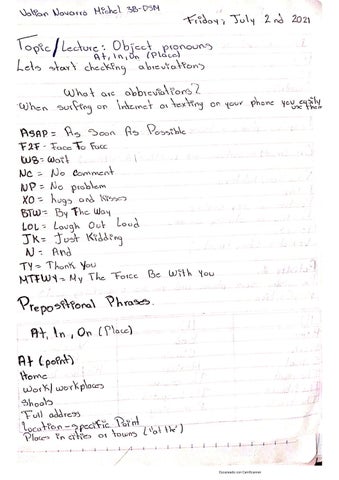 Valtian Navarro Michel 3B-DSM
Friday, July 2nd 2021
Topic/Lecture: Object pronouns
At, In, On (Place)
Lets start checking abreviations
What are abbreviations?
When surfing on Internet or texting on your phone you easily
use them
ASAP = As Soon As Possible
F2F - Face To Face
W8 = Wait
NC = No comment
NP = No problem
XO = hugs and kisses
BTW = By The Way
LOL = Laugh Out Loud
JK = Just Kidding
N = And
TY = Thank you
MTFWY = My The Force Be With you
Prepositional Phrases.
At, In, On (Place)
At (point)
Home
Work/workplaces
Shools
Full address
Location - specific Point
Places in cities or towns ("at the")
Escaneado con CamScanner